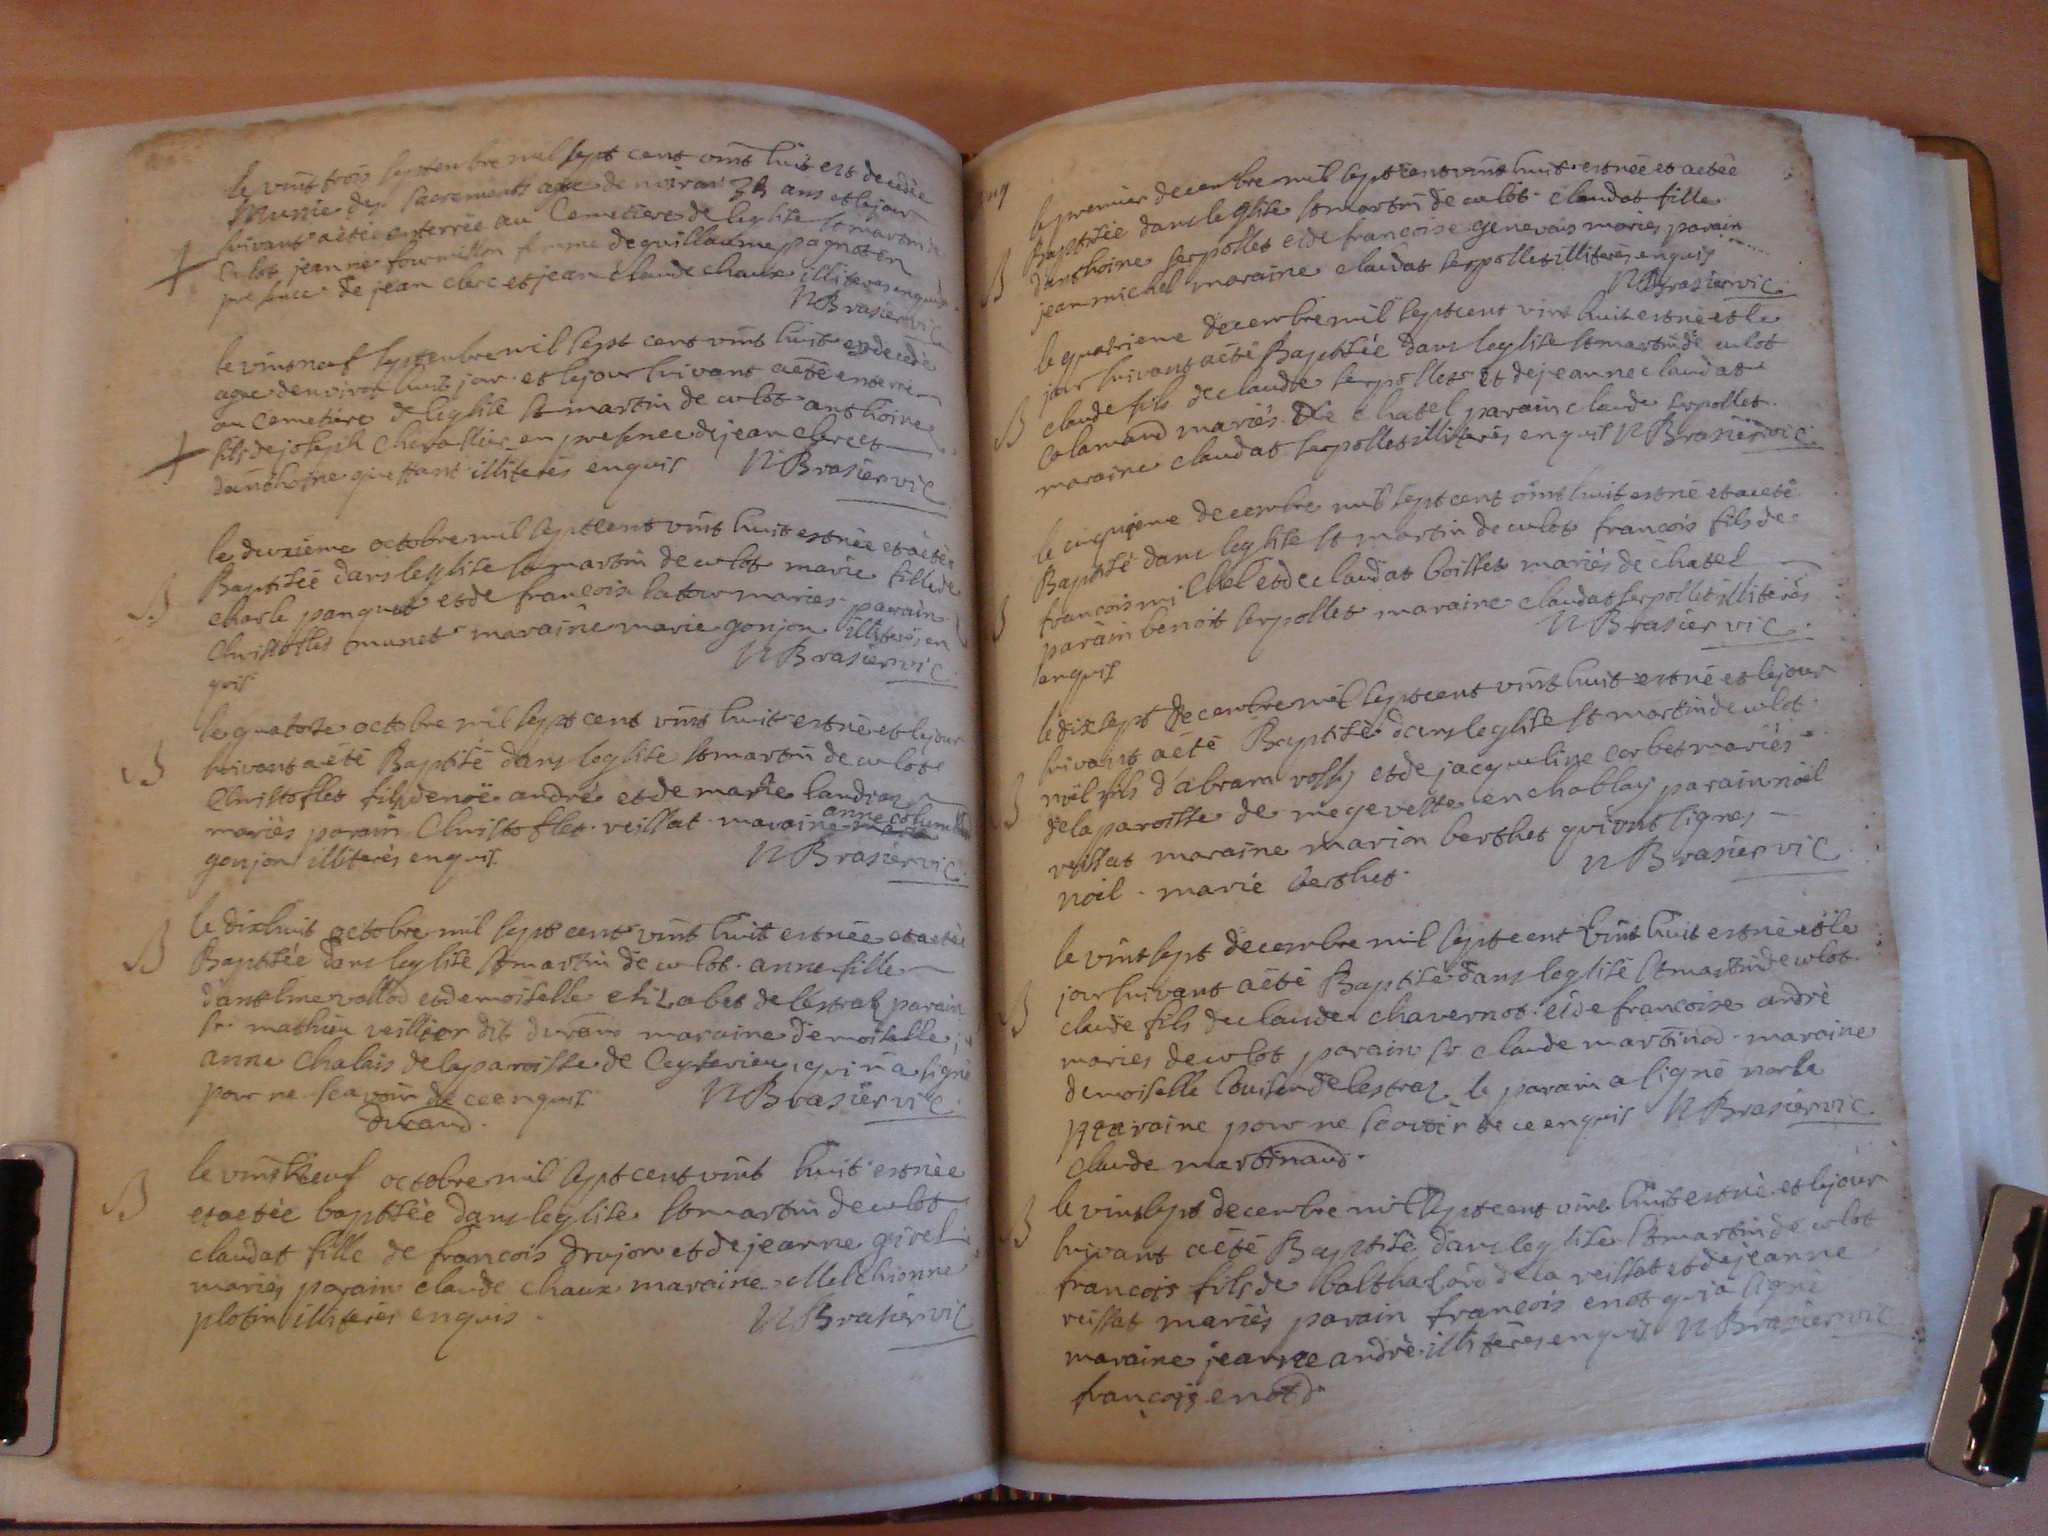 le vint trois septenbre mil sept cent vint huit est decedée
munie des sacrements agée denviron ans et le jour
suivant aeté enterrée au Cemetiere de leglise st martin de
culot jeanne fournillon femme de guillaume pagnot en
presence de jean clerc et jean claude chaux illiteres enquis
N Brasier vic
le vint neuf septenbre mil sept cent vint huit est decedé
agé denviron huit jour et le jour suivant aeté enterré
au Cemetiere de leglise st martin de culot anthoine
fils de joseph chevallier en presence de jean clerc et
danthoine quettant illiterés enquis N Brasier vic
B le duxieme octobre mil sept cent vint huit est née et aetée
Baptisée dans leglise st martin de culot marie fille de
charle panquet et de francoise latour mariés parain
Christofles munet maraine marie gonjon illiterés en
quis N Brasier vic
B le quatorze octobre mil sept cent vint huit est né et le jour
suivant aété Baptisé dans leglise st martin de culot
Christofles fils de noë andré et de marie landraz
mariés parain Christofles veissat maraine anne columb
gonjon illiterés enquis N Brasier vic
B le dixhuit octobre mil sept cent vint huit est née et aeteé
Baptisée dans leglise st martin de culot anne fille
danthme vollod et demoiselle elizabet de lestraz parain
sr mathieu veillier dit durand maraine demoiselle
anne Chalais de la paroisse de Ceyserieu, qui n a signé
pour ne scavoir de ce enquis N Brasier vic
durand
B le vint neuf octobre mil sept cent vint huit est née
et aetée baptisée dans leglise st martin de culot
claudat fille de francois drujon et de jeanne girel
mariés parain claude chaux maraine Melchionne
plotin illiterés enquis N Brasier vic
B le premier decembre mil sept cent vint huit est née et aetée
Baptisée dans leglise st martin de culot claudat fille
danthoine serpollet et de francoise genevais mariés parain
jean michel maraine claudat serpollet illiterés enquis
N Brasier vic
B le quatrieme decembre mil sept cent vint huit est né et le
jour suivant aété Baptisée dans leglise st martin de culot
claude fils de claude serpollet et de jeanne claudat
Calamand mariés de chatel parain claude serpollet
maraine claudat serpollet illiterés enquis N Brasier vic
B le cinquieme decembre mil sept cent vint huit est né et aeté
Baptisé dans leglise st martin de culot francois fils de
francois michel et de claudat boisset mariés de chatel
parain benoit serpollet maraine claudat serpollet illiterés
enquis N Brasier vic
B le dixsept decembre mil sept cent vint huit est né et le jour
suivant aété Baptisé dans leglise st martin de culot
noël fils d'abram vossy et de jacqueline corbet mariés
de la paroisse de megevette en chablay parain noël
veissat maraine marion berthet qui ont signes
noël marie berthet N Brasier vic
B le vint sept decembre mil sept cent vint huit est né et le
jour suivant aété Baptisé dans leglise st martin de culot
claude fils de claude chavernot et de francoise andré
mariés de culot parain sr claude martinod maraine
demoiselle louise de lestraz le parain a signé non la
maraine pour ne scavoir de ce enquis N Brasier vic
claude martinaud
B le vint sept decembre mil sept cent vint huit est né et le jour
suivant aété Baptisé dans leglise st martin de culot
francois fils de balthazard de la veissat et de jeanne
veissat mariés parain francois enot qui a signé
maraine jeanne andré illiteres enquis N Brasier vic
françois enotd